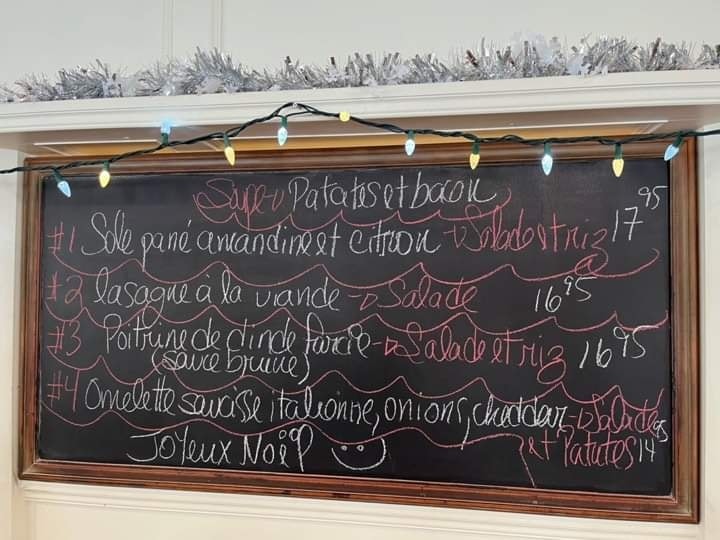 Soupe → Patates et bacon
#1 Sole pané amandine et citron → Salade et riz 17 95
#2 lasagne à la viande → Salade 16 95
#3 Poitrine de dinde farcie → Salade et riz 16 95
(sauce brune)
#4 Omelette saucisse italienne, onions, cheddar → Salade
et Patates 14 95
Joyeux Noël